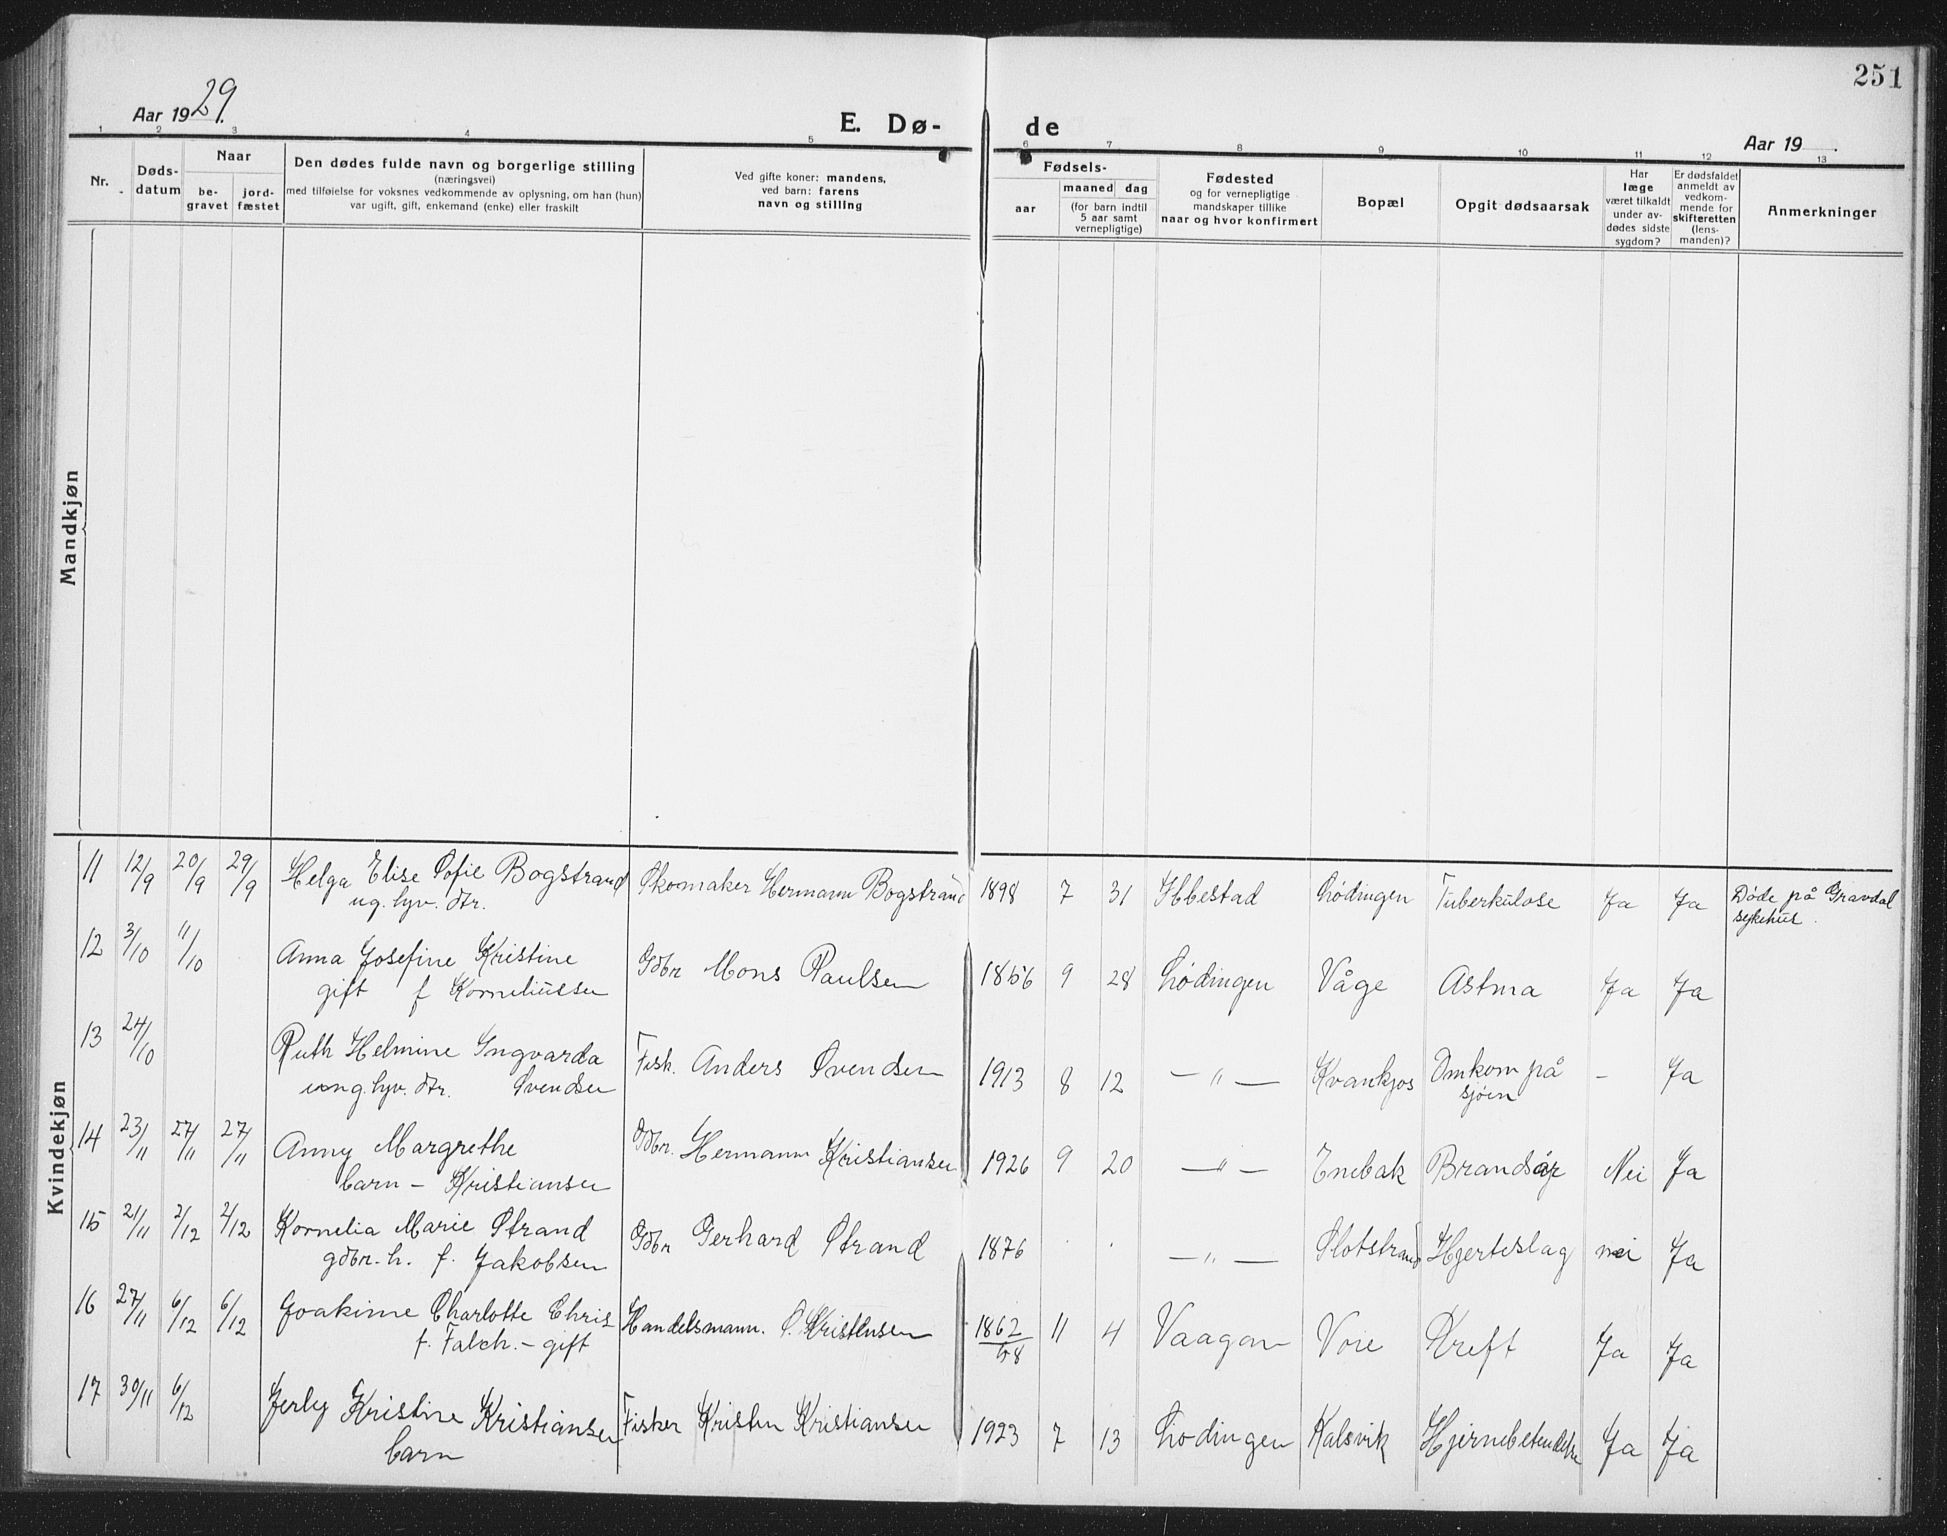 251
Aar 1929.
E. Dø- de
Aar 19
1 2 3 4 5 6 7 8 9 10 11 12 13
Nr.
Døds-
datum
Naar
be-
gravet
jord-
fæstet
Den dødes fulde navn og borgerlige stilling
(næringsvei)
med tilføielse for voksnes vedkommende av oplysning, om han (hun)
var ugift, gift, enkemand (enke) eller fraskilt
Ved gifte koner: mandens,
ved barn: farens
navn og stilling
Fødsels-
aar
maaned dag
(for barn indtil
5 aar samt
vernepligtige)
Fødested
og for vernepligtige
mandskaper tillike
naar og hvor konfirmert
Bopæl
Opgit dødsaarsak
Har
læge
været tilkaldt
under av-
dødes sidste
sygdom?
Er dødsfaldet
anmeldt av
vedkom-
mende for
skifteretten
(lens-
manden)?
Anmerkninger
Mandkjøn
Kvindekjøn
11 12/9 20/9 29/9 Helga Elise Sofie Bogstrand Skomaker Hermann Bogstrand 1898 7 31 Ibbestad Lødingen Tuberkulose Ja Ja Døde på Gravdal
ug. hyv. dtr. sykehus.
12 3/10 11/10 Anna Josefine Kristine Gdbr Mons Paulsen 1856 9 28 Lødingen Våge Astma Ja Ja
gift f Korneliussen
13 24/10 Ruth Helmine Ingvarda Fisk. Anders Svendsen 1913 8 12 — " — Kvankjos Omkom på - Ja
ung. hyv. dtr. Svendsen sjøen
14 23/11 27/11 27/11 Anny Margrethe Gdbr. Hermann Kristiansen 1926 9 20 — " — Enebak Brandsår Nei Ja
barn - Kristiansen
15 21/11 2/12 2/12 Kornelia Marie Strand Gdbr Gerhard Strand 1876 . . — " — Slotstrand Hjerteslag nei Ja
gdbr. h. f. Jakobsen
16 27/11 6/12 6/12 Joakime Charlotte Chris Handelsmann. Kristensen 1862/58 11 4 Vaagan Voie Kreft Ja Ja
f. Falch. - gift
17 30/11 6/12 Jerly Kristine Kristiansen Fisker Kristen Kristiansen 1923 7 13 Lødingen Kalsvik Hjernebetendelse Ja Ja
barn